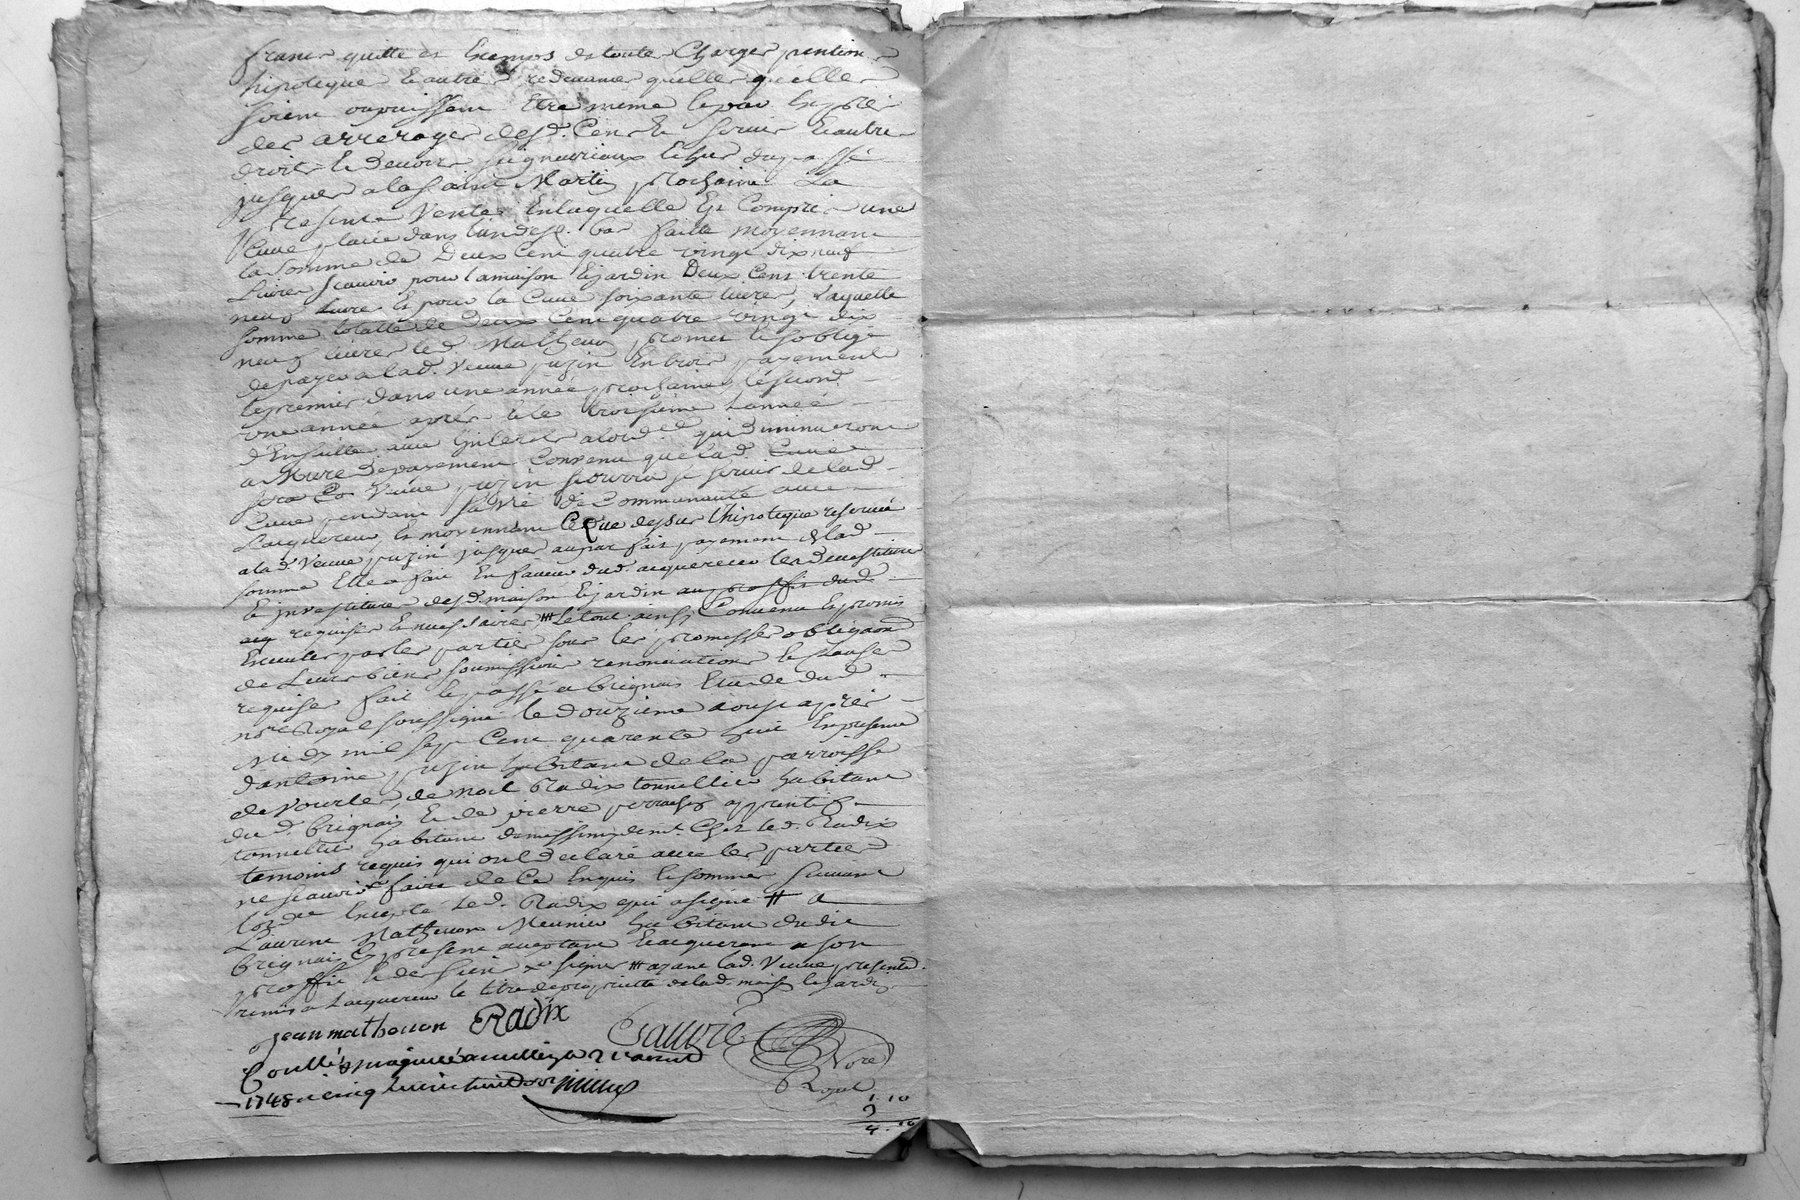 francs quitte et Exemps de toutes Charges pention
hipoteque Et autres redevances quelles quelles
soient ou puissent Etre meme le pour
des arrerages desd. Cens Et servis Et autres
droits Et Devoirs seigneuriaux Echus du passé
jusques a la saint Martin prochaine La
presente Vente En laquelle Est Comprise une
Cuve placée dans l'un desd. bas faitte moyennant
la somme de Deux Cent quatre vingt dix neuf
Livres scavoir pour la maison Et jardin Deux Cens trente
neuf Livre Et pour la Cuve soixante livres, Laquelle
somme totalle de Deux Cent quatre vingt dix
neuf livres led. Mathevon promet Et s'oblige
de payer a lad. Veuve puzin En trois payements
le premier dans une année prochaine le second
une année après Et le troisieme L'année
d'Ensuitte avec Interets qui Diminueront
a Mure De payement Convenu que lad. Cuve
sera Veuve puzin pourra se servir de lad.
Cuve pendant sa vie De Communauté avec
L'acquereur, Et moyennant Ce que dessus l'hipoteque reservée
a lad. Veuve puzin jusques au parfait payement de lad.
somme Elle a fait En faveur dud. acquereur les Devestitures
Et investitures desd. maison Et jardin au proffit dud.
acq requises Et necessaires Le tout ainsy Convenu Et promis
Executer par les parties sous les promesses obligaons
de Leurs biens soumissions renonciations Et Clauses
requises fait Et passé a brignais Etude dud.
nore Royal soussigné le Douzieme aoust après
Midy mil sept Cent quarente huit En presence
d'antoine puzin habitant de la parroisse
de Vourles, de noel Radix tonnellier habitant
dud. brignais Et de pierre apprentif
tonnellier habitant Chez led. Radix
temoins requis qui ont Declaré avec les parties
ne scavoir faire de Ce Enquis Et sommes suivant
lordce Excepté led. Radix qui a signé # a
Laurent Mathevon Meunier habitant dudit
brignais Et present acceptant Et acquerant a son
proffit Et des siens signer ayant lad. Veuve presentd.
remis a Lacquereur le titre de proprietté de lad. maison Et jardin
jean mathevon Radix
Nore
Royal
1748
1 . 10
3
4 . 10